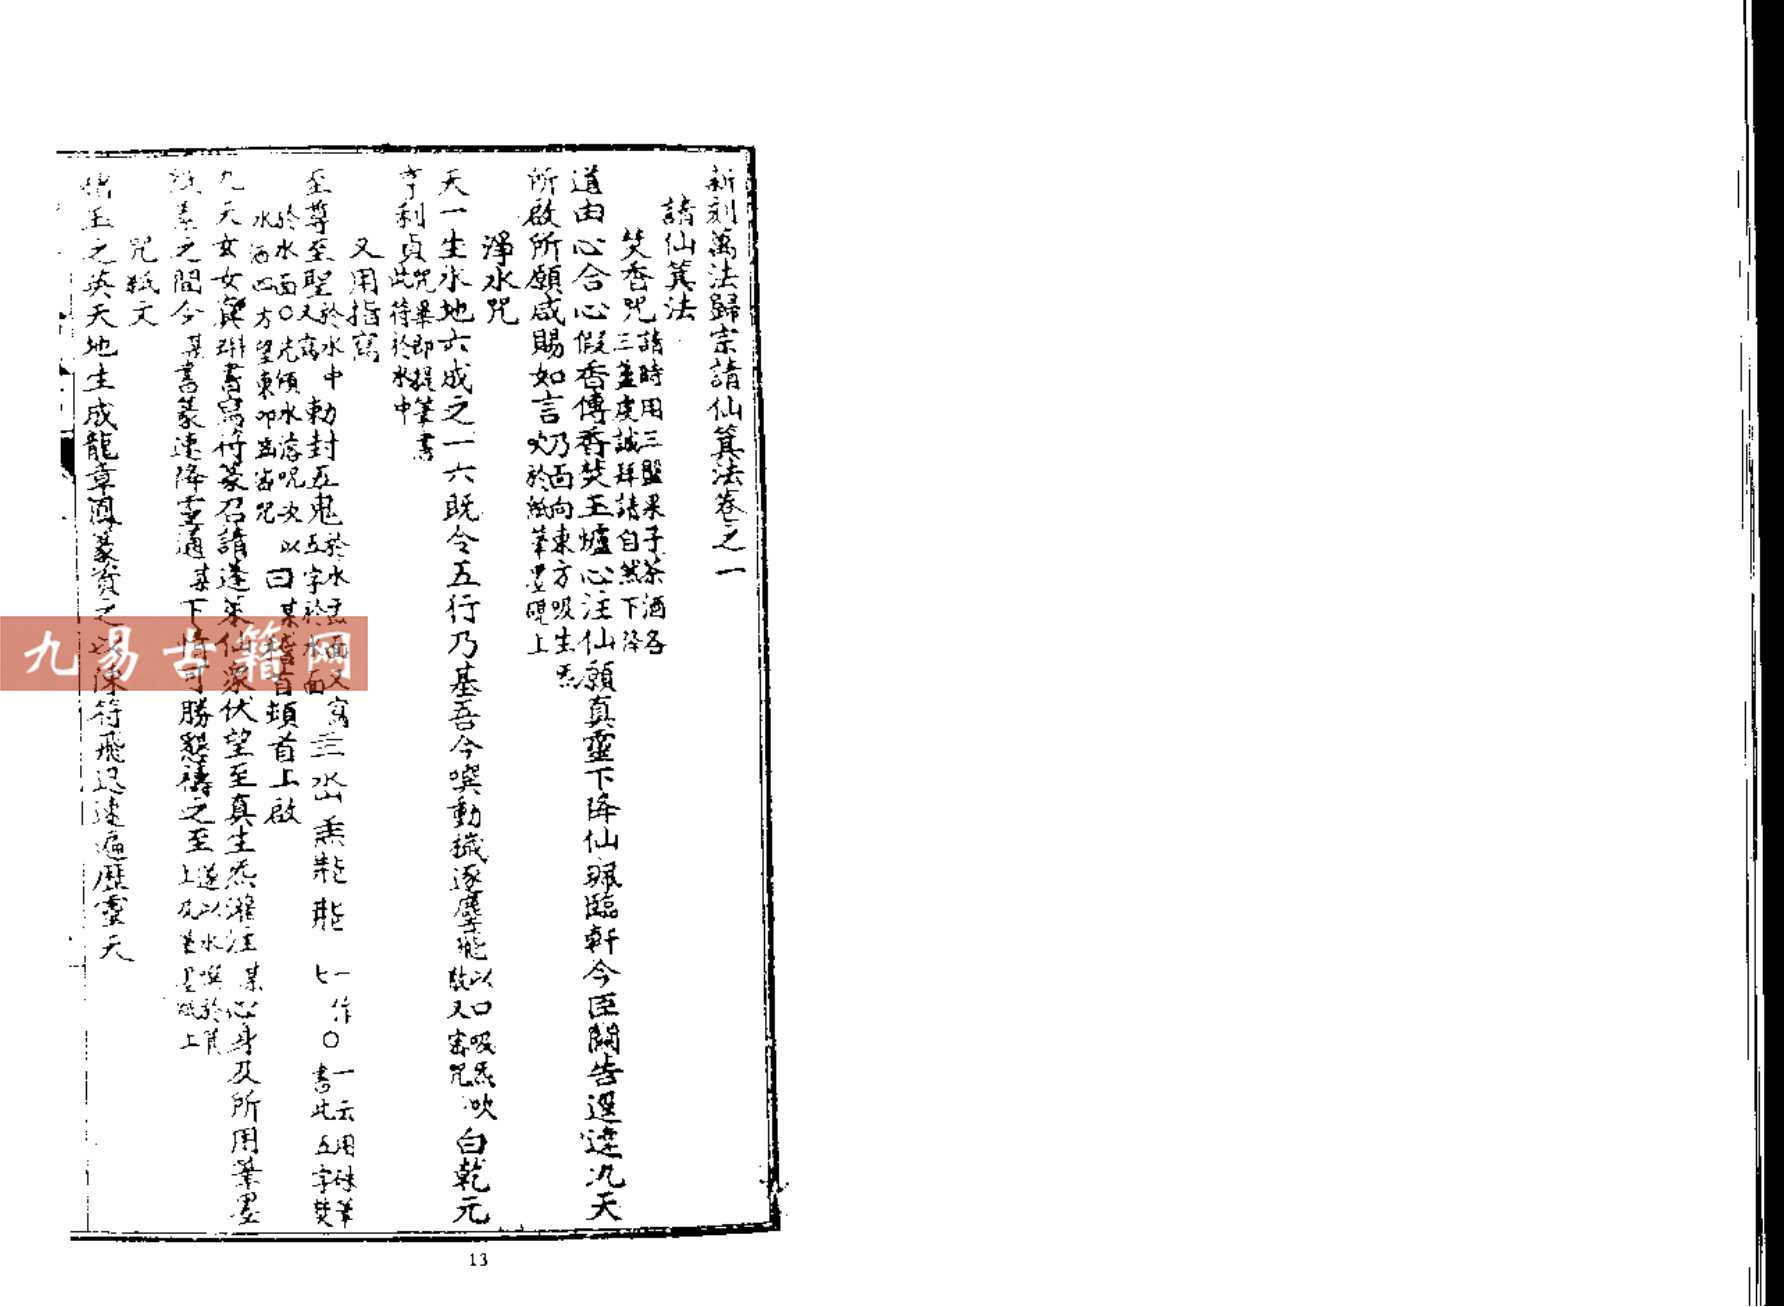 新刻萬法歸宗請仙箕法卷之一
請仙箕法
焚香咒 請時用三盤果子茶酒各三盞虔誠拜請自然下降
道由心合心假香傳香焚玉爐心注仙願真靈下降仙珮臨軒今臣關告逕達九天
所啟所願咸賜如言 乃面向東方吸生炁吹於紙筆墨硯上
淨水咒
天一生水地六成之一六既合五行乃基吾今噀動穢逐塵飛 以口吸炁吹數又密咒 白乾元
亨利貞 咒畢即提筆書此符於水中
又用指寫
至尊至聖 於水中又寫 勅封五鬼 於水盂面又寫五字於水面 一作〇 一云用硃筆書此五字焚
於水面〇先傾水落呪次以水洒四方望東叩齒密咒 曰 某稽首頓首上啟
九天玄女 書寫符篆召請蓬萊仙眾伏望至真生炁灌注 某 心身及所用筆墨
之間令 某 書篆速降靈通 某 下情可勝懇禱之至 遂以水噀於筆上及
咒紙文
玉之英天地生成龍章鳳篆資之以陳符飛迅速遍歷靈天
13
九易古籍网